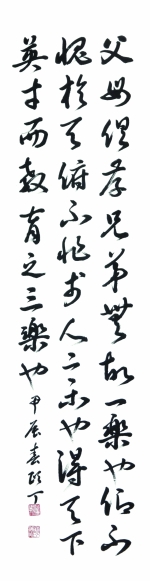 父母俱存兄弟無故一樂也仰不
愧於天俯不怍於人二樂也得天下
英才而教育之三樂也甲辰春丁